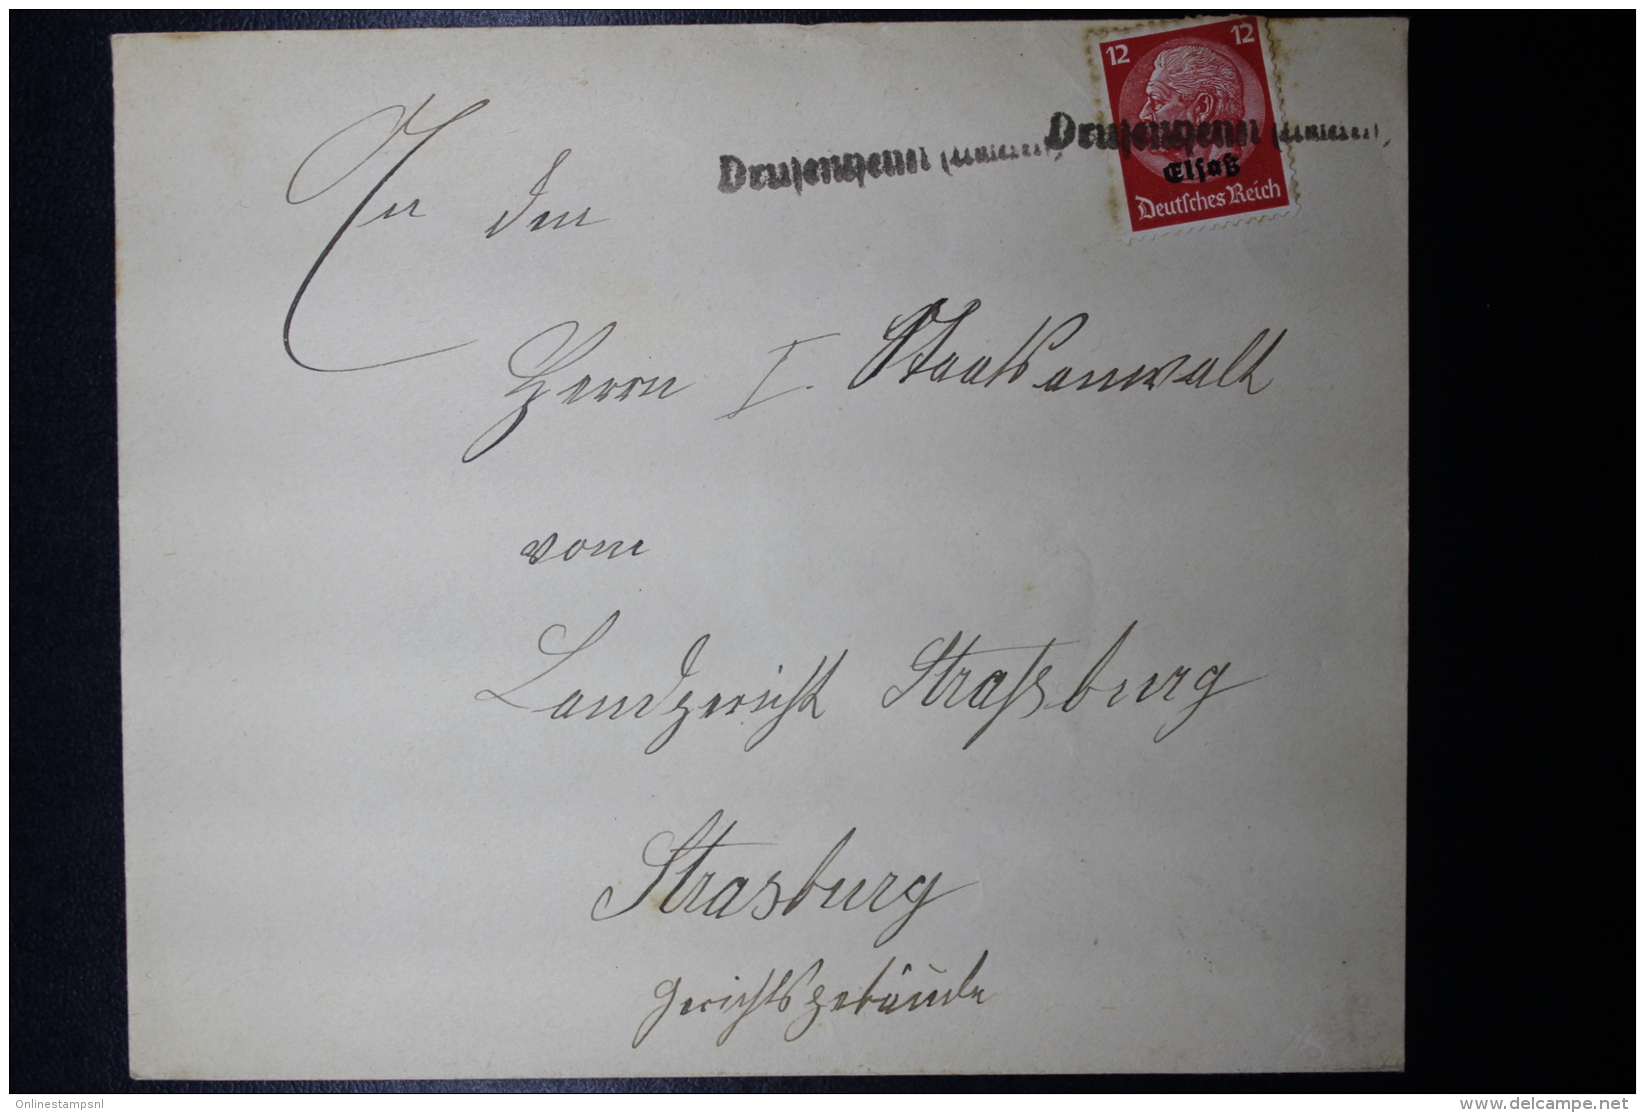 12 12
Drusenheim Drusenheim
Elsaß
Deutsches Reich
An den
Herrn I. Staatsanwalt
vom
Landgericht Straßburg
Strasburg
Gerichtsgebäude
Onlinestampsnl
www.delcampe.net